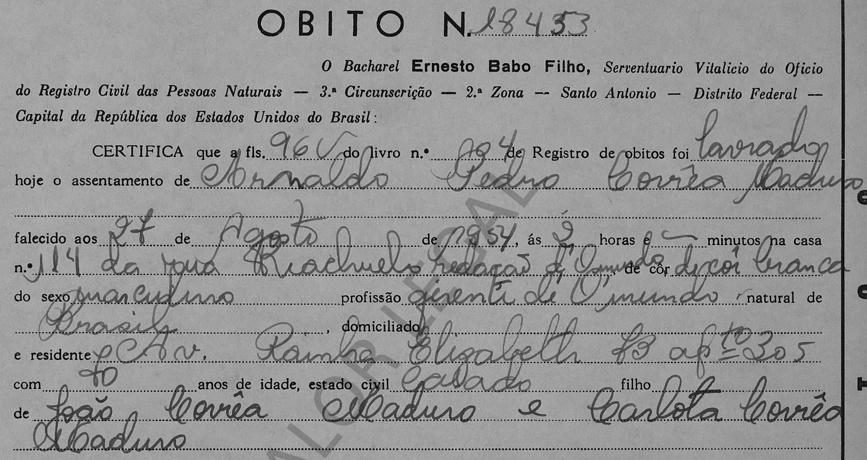 OBITO N. 18453
O Bacharel Ernesto Babo Filho, Serventuario Vitalicio do Oficio
do Registro Civil das Pessoas Naturais — 3.ª Circunscrição — 2.ª Zona — Santo Antonio — Distrito Federal —
Capital da República dos Estados Unidos do Brasil:
CERTIFICA que a fls. 96V do livro n.º de Registro de obitos foi lavrado
hoje o assentamento de Arnaldo Pedro Corrêa Maduro
falecido aos 27 de Agosto de 1954, ás horas e — minutos na casa
n.º 114 da rua Riachuelo redação d'O mundo de côr de côr branca
do sexo masculino profissão gerente de O mundo natural de
Brasil, domiciliado
e residente Av. Rainha Elizabeth 73 aptº 305
com 70 anos de idade, estado civil Casado filho
de João Corrêa Maduro e Carlota Corrêa
Maduro
VALOR LEGAL